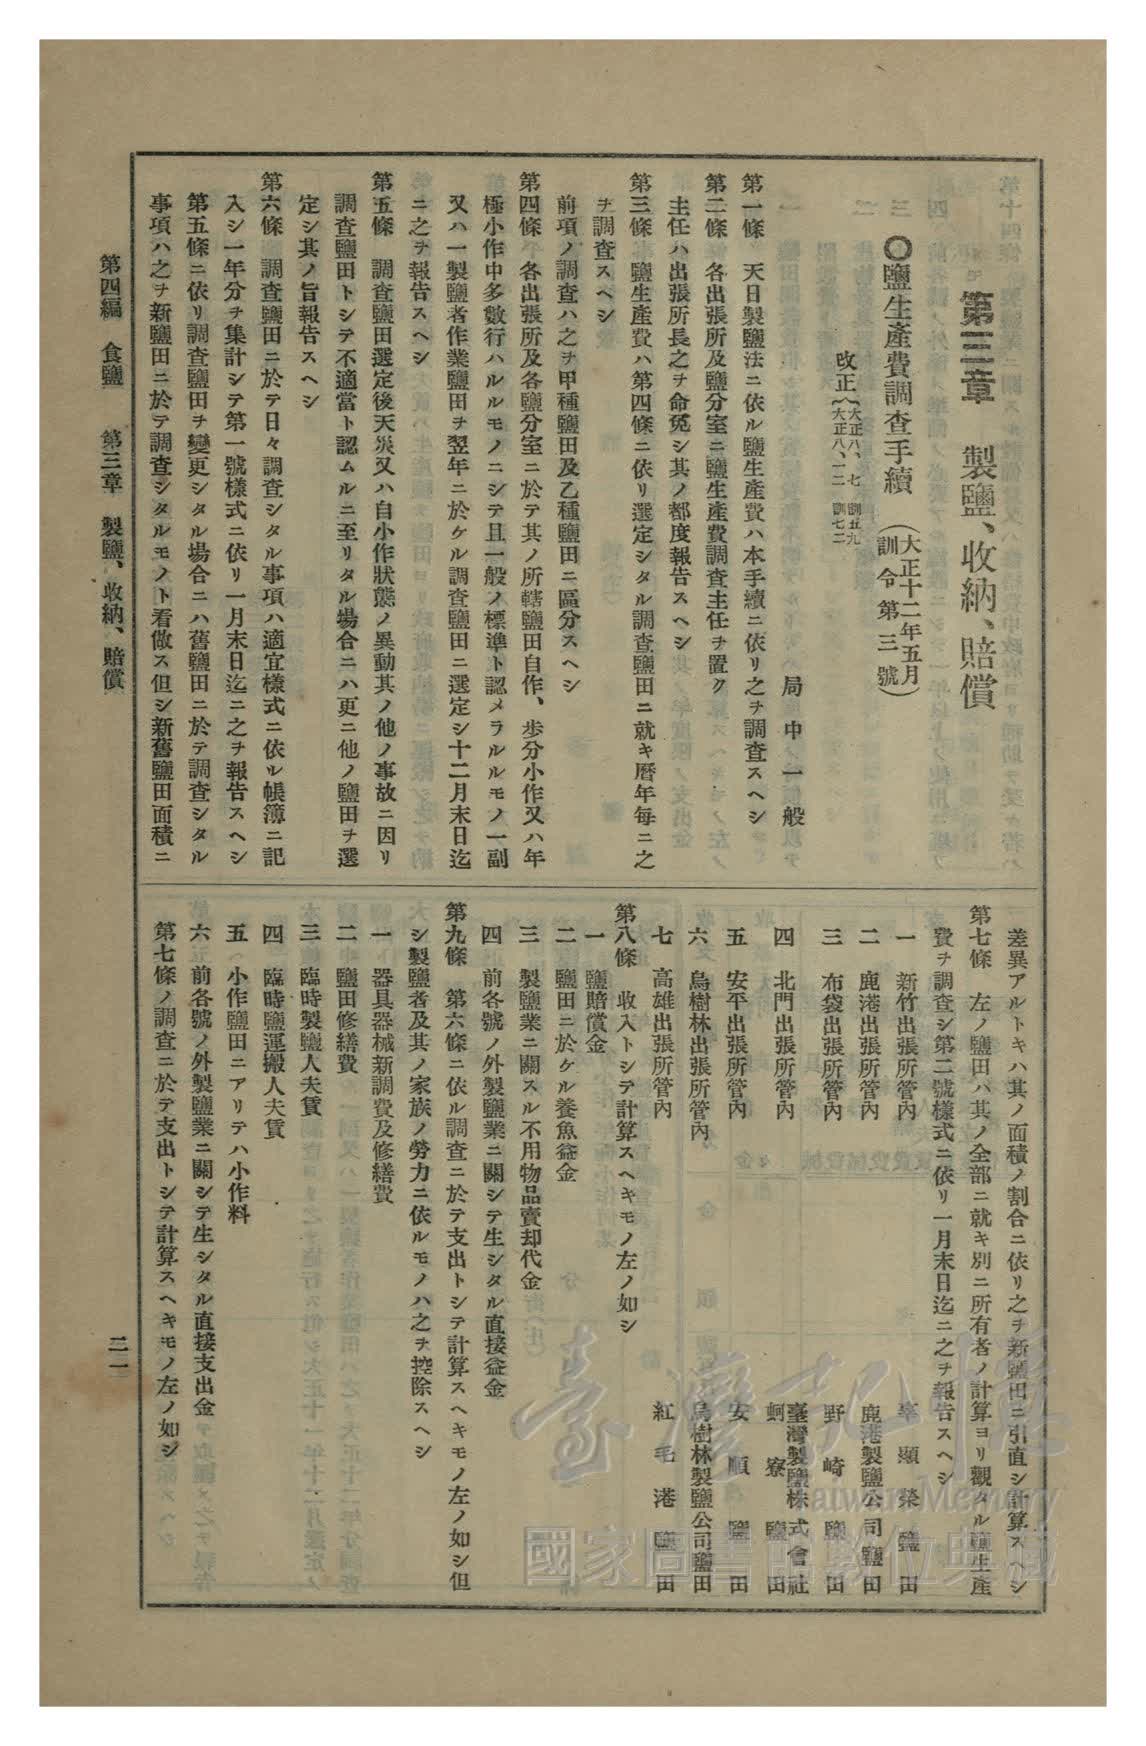 第三章　製鹽、收納、賠償
◎鹽生產費調查手續（大正十二年五月訓令第三號）
改正（大正八、七　訓五九　大正八、一二　訓七二
局中一般
第一條　天日製鹽法ニ依ル鹽生產費ハ本手續ニ依リ之ヲ調查スヘシ
第二條　各出張所及鹽分室ニ鹽生產費調查主任ヲ置ク
主任ハ出張所長之ヲ命免シ其ノ都度報告スヘシ
第三條　鹽生產費ハ第四條ニ依リ選定シタル調查鹽田ニ就キ曆年每ニ之
ヲ調查スヘシ
前項ノ調查ハ之ヲ甲種鹽田及乙種鹽田ニ區分スヘシ
第四條　各出張所及各鹽分室ニ於テ其ノ所轄鹽田自作、步分小作又ハ年
極小作中多數行ハルルモノニシテ且一般ノ標準ト認メラルルモノ一副
又ハ一製鹽者作業鹽田ヲ翌年ニ於ケル調查鹽田ニ選定シ十二月末日迄
ニ之ヲ報告スヘシ
第五條　調查鹽田選定後天災又ハ自小作狀態ノ異動其ノ他ノ事故ニ因リ
調查鹽田トシテ不適當ト認ムルニ至リタル場合ニハ更ニ他ノ鹽田ヲ選
定シ其ノ旨報告スヘシ
第六條　調查鹽田ニ於テ日々調查シタル事項ハ適宜樣式ニ依ル帳簿ニ記
入シ一年分ヲ集計シテ第一號樣式ニ依リ一月末日迄ニ之ヲ報告スヘシ
第五條ニ依リ調查鹽田ヲ變更シタル場合ニハ舊鹽田ニ於テ調查シタル
事項ハ之ヲ新鹽田ニ於テ調查シタルモノト看做ス但シ新舊鹽田面積ニ
差異アルトキハ其ノ面積ノ割合ニ依リ之ヲ新鹽田ニ引直シ計算スヘシ
第七條　左ノ鹽田ハ其ノ全部ニ就キ別ニ所有者ノ計算ヨリ觀タル鹽生產
費ヲ調查シ第二號樣式ニ依リ一月末日迄ニ之ヲ報告スヘシ
一　新竹出張所管內　辜顯榮鹽田
二　鹿港出張所管內　鹿港製鹽公司鹽田
三　布袋出張所管內　野崎鹽田
四　北門出張所管內　臺灣製鹽株式會社蚵寮鹽田
五　安平出張所管內　安順鹽田
六　烏樹林出張所管內　烏樹林製鹽公司鹽田
七　高雄出張所管內　紅毛港鹽田
第八條　收入トシテ計算スヘキモノ左ノ如シ
一　鹽賠償金
二　鹽田ニ於ケル養魚益金
三　製鹽業ニ關スル不用物品賣却代金
四　前各號ノ外製鹽業ニ關シテ生シタル直接益金
第九條　第六條ニ依ル調查ニ於テ支出トシテ計算スヘキモノ左ノ如シ但
シ製鹽者及其ノ家族ノ勞力ニ依ルモノハ之ヲ控除スヘシ
一　器具器械新調費及修繕費
二　鹽田修繕費
三　臨時製鹽人夫賃
四　臨時鹽運搬人夫賃
五　小作鹽田ニアリテハ小作料
六　前各號ノ外製鹽業ニ關シテ生シタル直接支出金
第七條ノ調查ニ於テ支出トシテ計算スヘキモノ左ノ如シ
第四編　食鹽　第三章　製鹽、收納、賠償
二一
臺灣記憶
Taiwan Memory
國家圖書館數位典藏